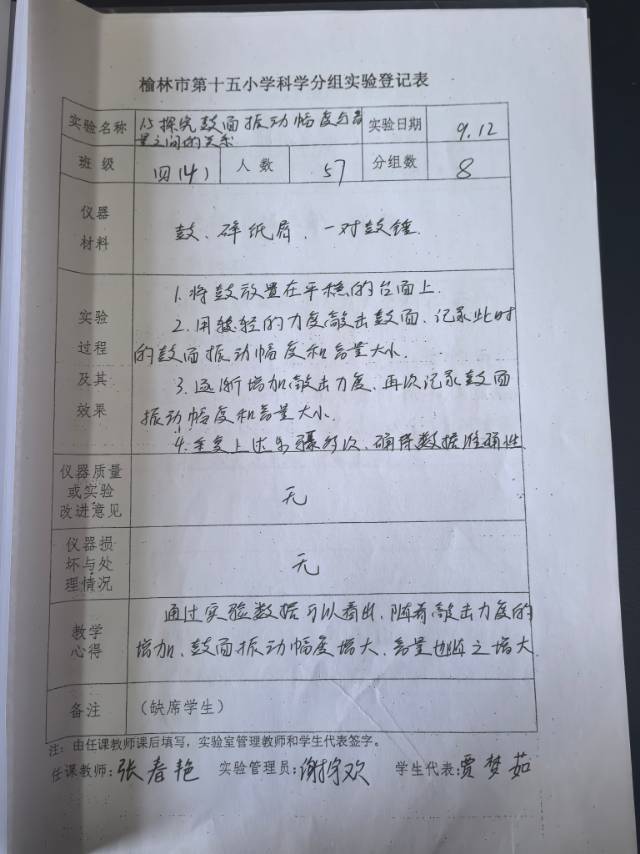 榆林市第十五小学科学分组实验登记表
实验名称 1.5探究鼓面振动幅度与音量之间的关系 实验日期 9.12
班 级 四(4) 人 数 57 分组数 8
仪器
材料
鼓、碎纸屑、一对鼓锤.
实验
过程
及其
效果
1.将鼓放置在平稳的台面上.
2.用较轻的力度敲击鼓面、记录此时
的鼓面振动幅度和音量大小.
3.逐渐增加敲击力度、再次记录鼓面
振动幅度和音量大小.
4.重复上述步骤多次、确保数据准确性
仪器质量
或实验
改进意见
无
仪器损
坏与处
理情况
无
教学
心得
通过实验数据可以看出、随着敲击力度的
增加、鼓面振动幅度增大、音量也随之增大
备注 （缺席学生）
注：由任课教师课后填写，实验室管理教师和学生代表签字。
任课教师:张春艳 实验管理员:谢欢 学生代表:贾梦茹